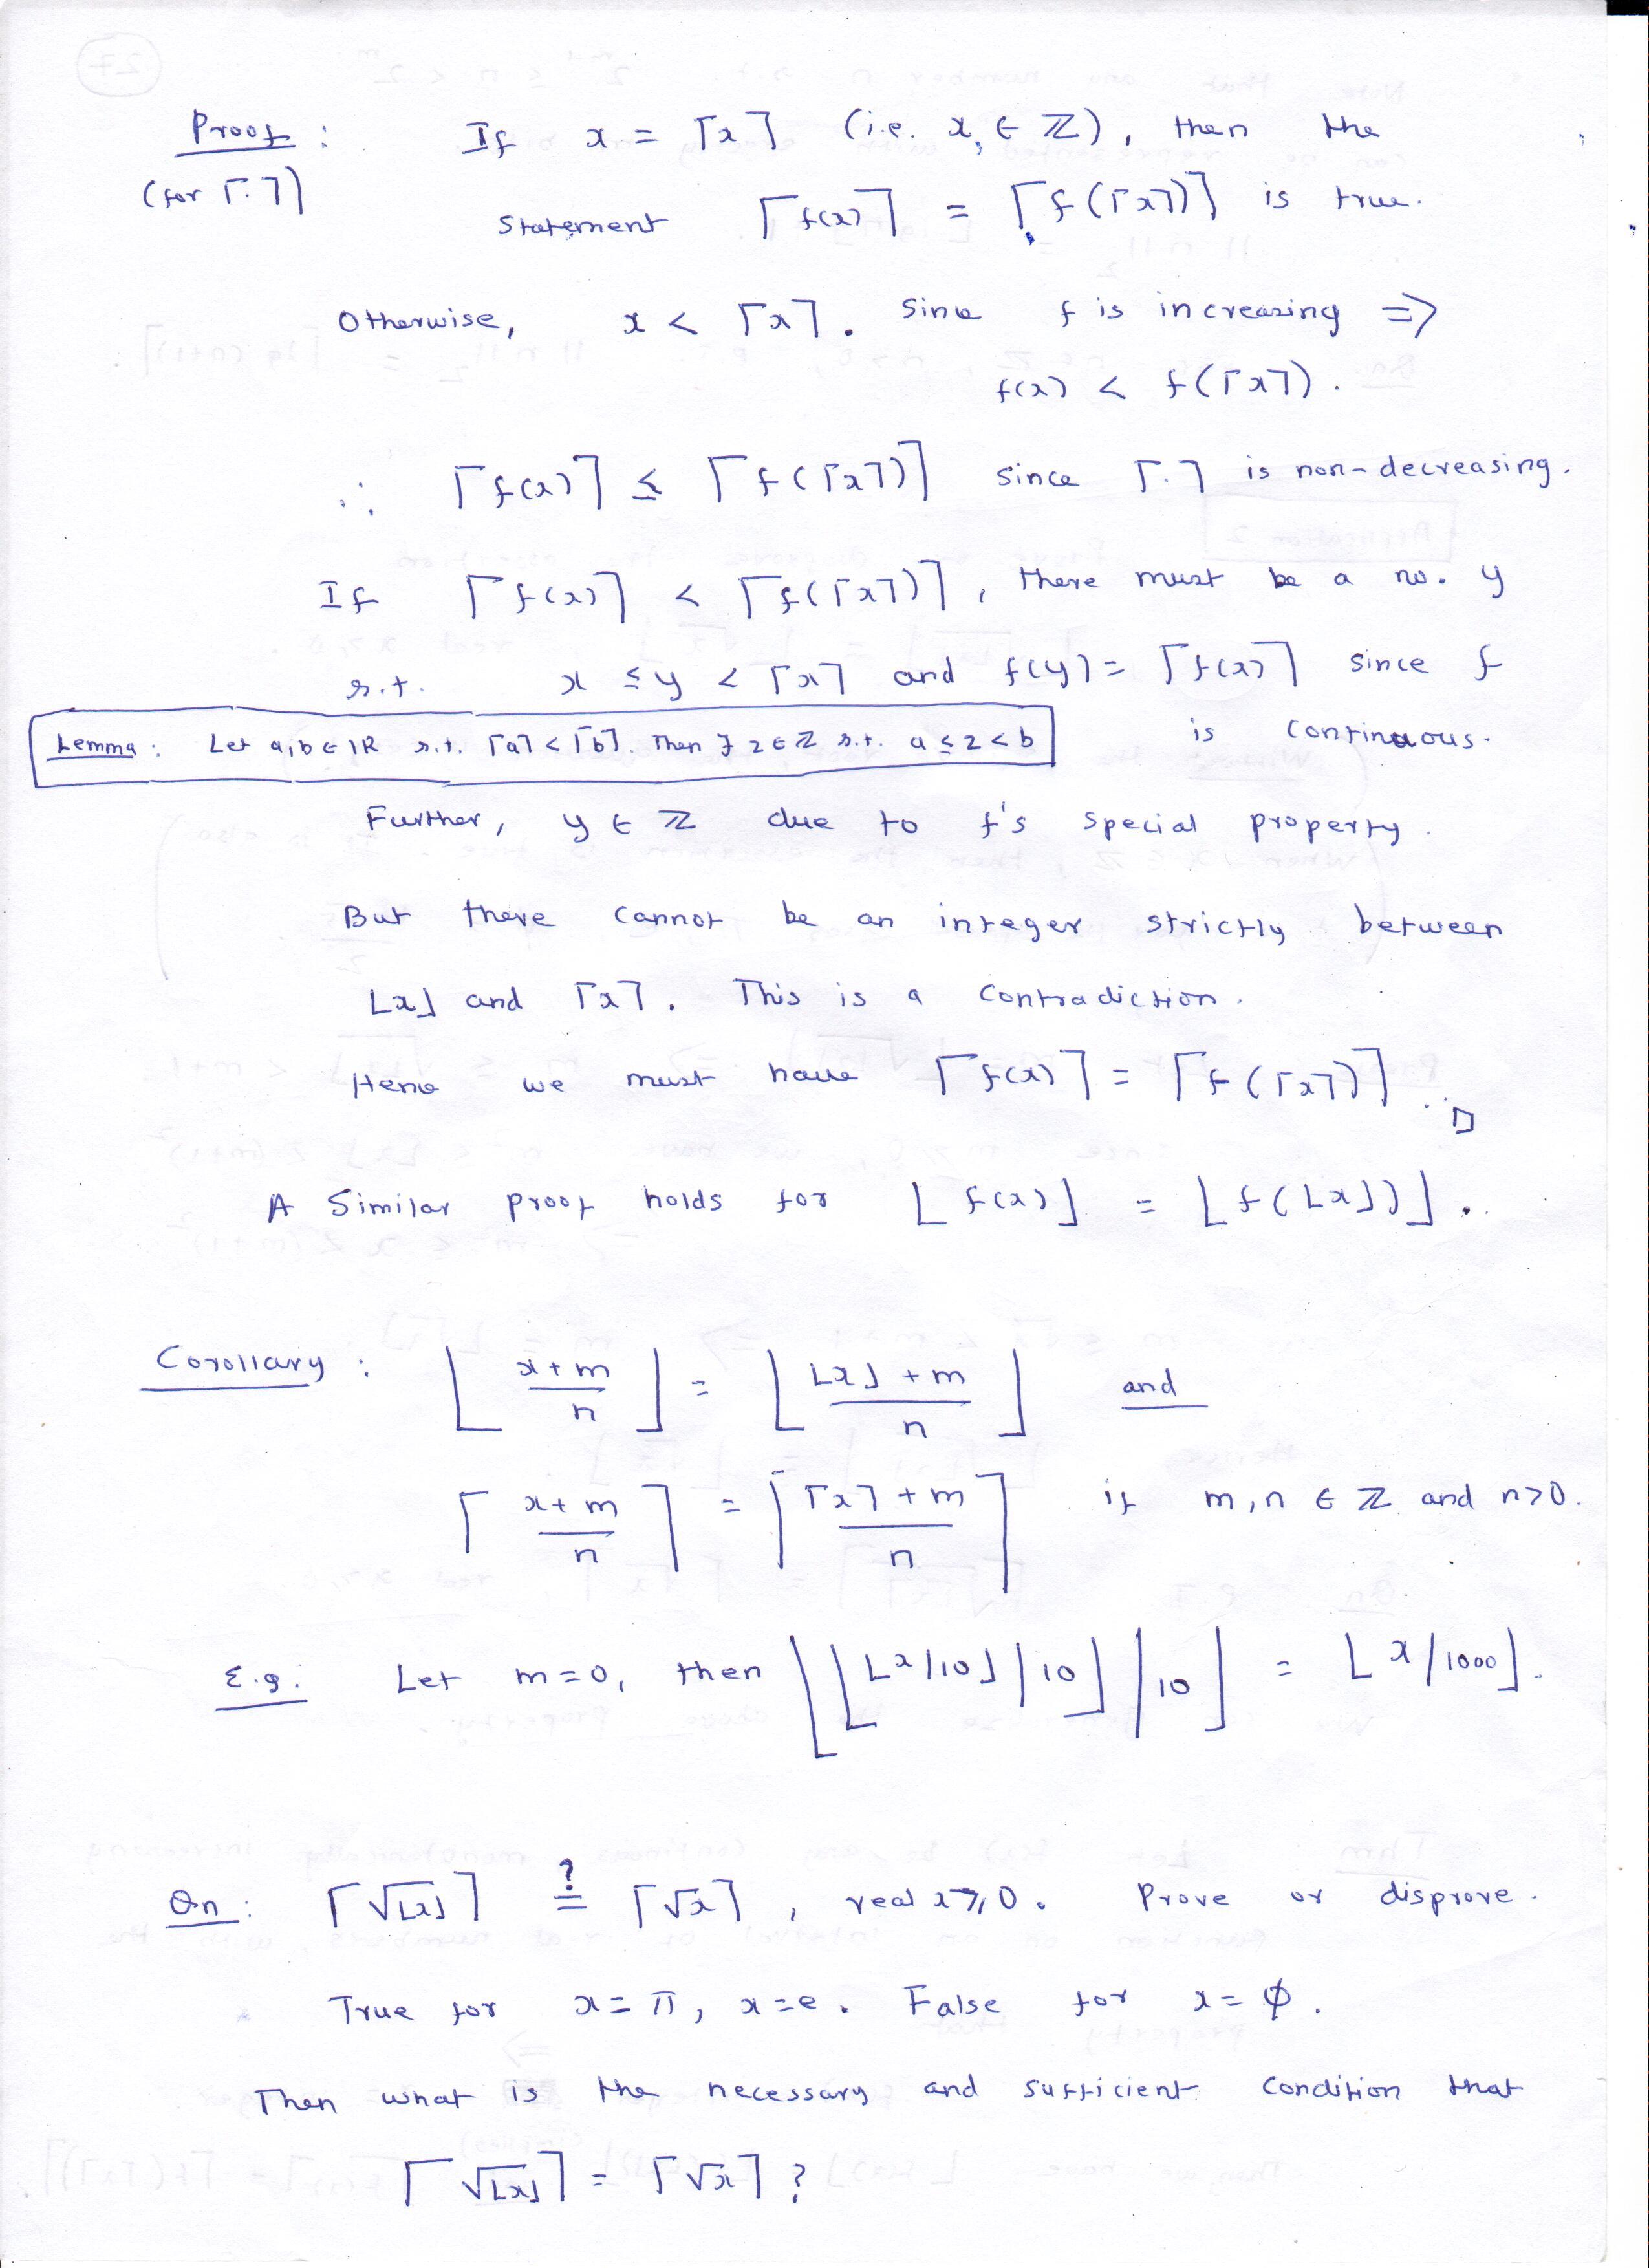 Proof : If x = ⌈x⌉ (i.e. x ∈ ℤ), then the
(for ⌈.⌉)
Statement ⌈f(x)⌉ = ⌈f(⌈x⌉)⌉ is true.
Otherwise, x < ⌈x⌉. Since f is increasing ⇒
f(x) < f(⌈x⌉).
∴ ⌈f(x)⌉ ≤ ⌈f(⌈x⌉)⌉ since ⌈.⌉ is non-decreasing.
If ⌈f(x)⌉ < ⌈f(⌈x⌉)⌉, there must be a no. y
s.t. x ≤ y < ⌈x⌉ and f(y) = ⌈f(x)⌉ since f
is continuous.
Lemma: Let a,b ∈ ℝ s.t. ⌈a⌉ < ⌈b⌉. Then ∃ z ∈ ℤ s.t. a ≤ z < b
Further, y ∈ ℤ due to f's special property.
But there cannot be an integer strictly between
⌊x⌋ and ⌈x⌉. This is a contradiction.
Hence we must have ⌈f(x)⌉ = ⌈f(⌈x⌉)⌉. □
A similar proof holds for ⌊f(x)⌋ = ⌊f(⌊x⌋)⌋.
Corollary : ⌊(x+m)/n⌋ = ⌊(⌊x⌋+m)/n⌋ and
⌈(x+m)/n⌉ = ⌈(⌈x⌉+m)/n⌉ if m,n ∈ ℤ and n>0.
E.g. Let m=0, then ⌊⌊⌊x/10⌋/10⌋/10⌋ = ⌊x/1000⌋.
Qn: ⌈√⌊x⌋⌉ ≟ ⌈√x⌉, real x ≥ 0. Prove or disprove.
True for x = π, x = e. False for x = ϕ.
Then what is the necessary and sufficient condition that
⌈√⌊x⌋⌉ = ⌈√x⌉ ?